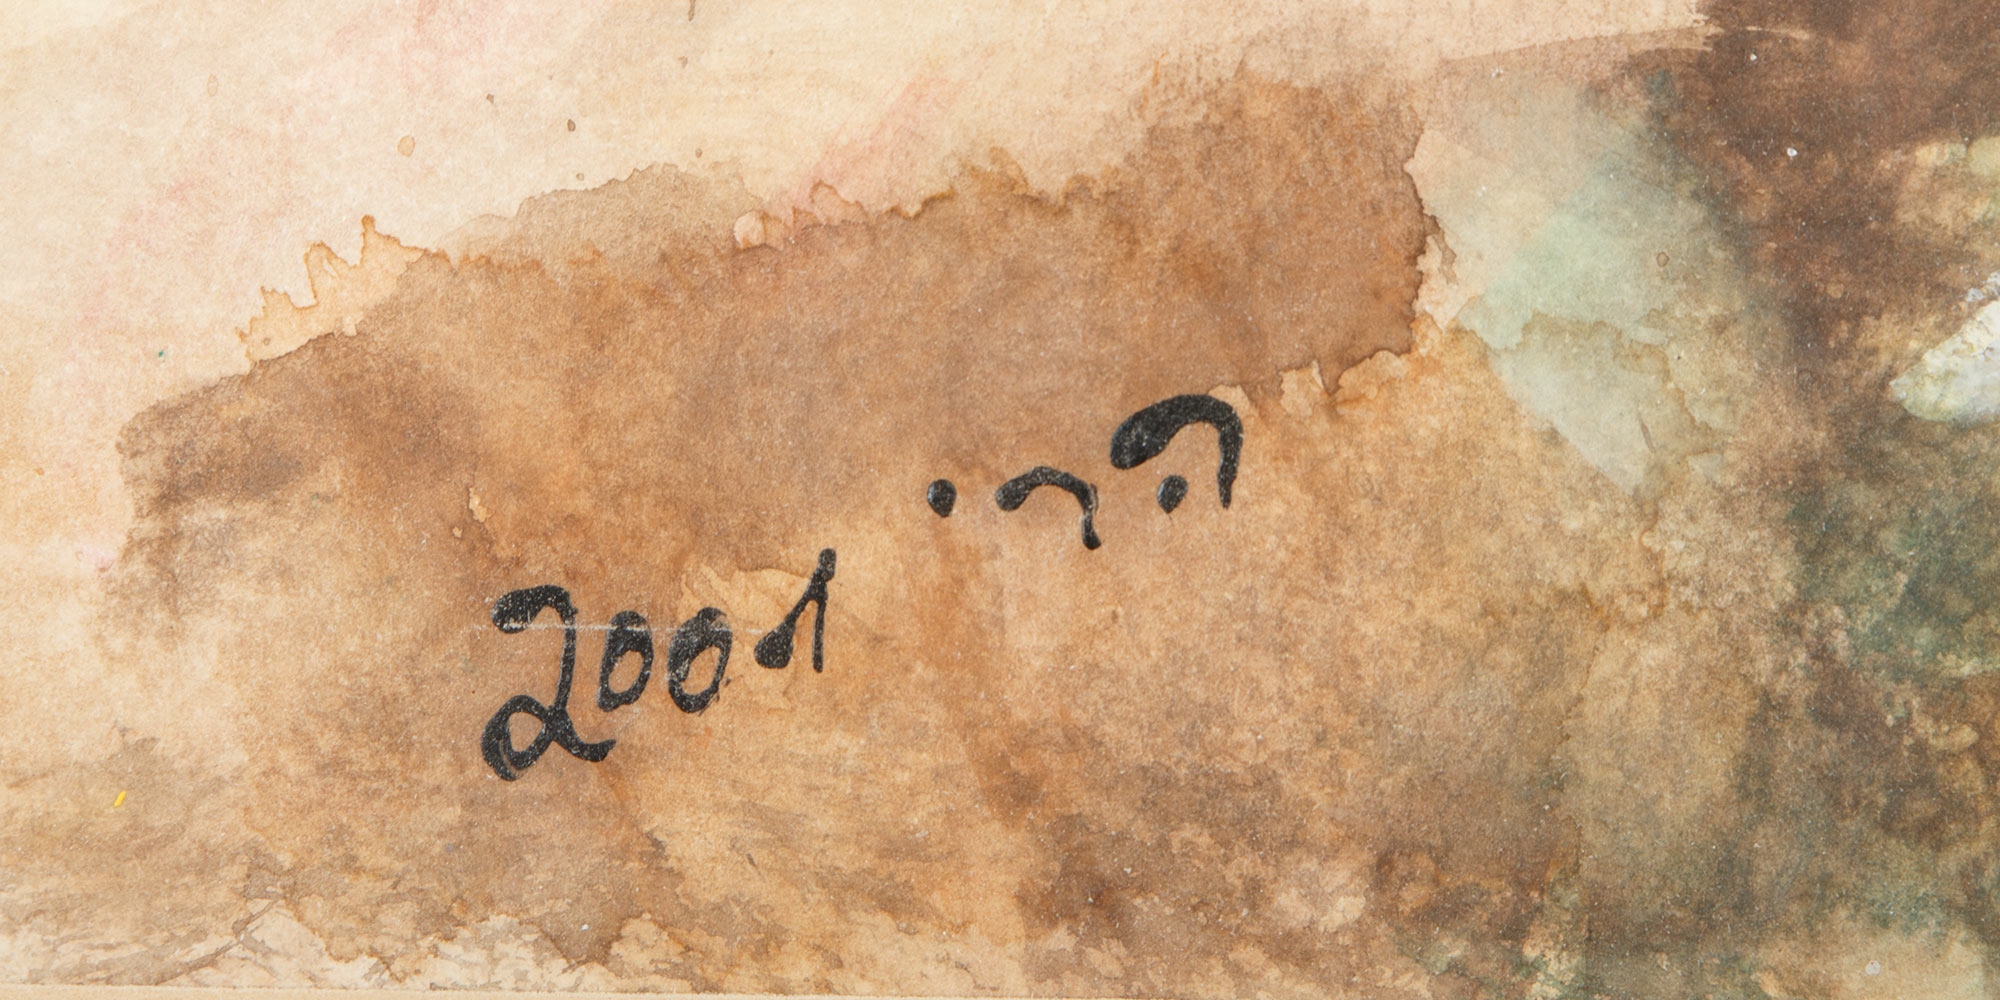 הרי
2001